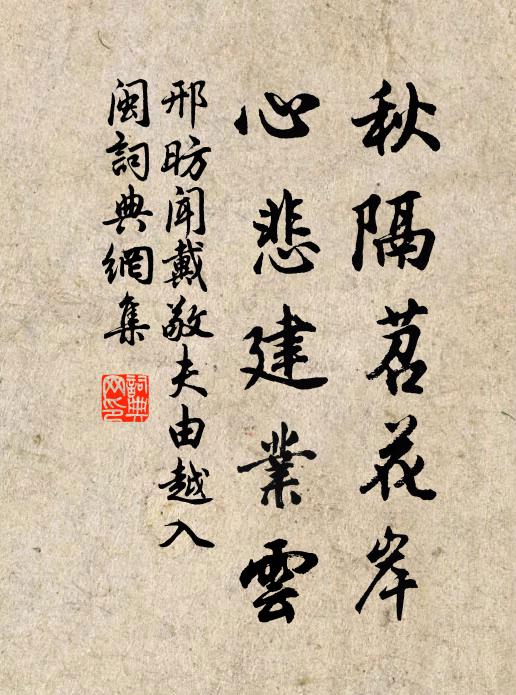 秋隔苕花岸
心悲建業雲
邢昉闻戴敬夫由越入
闽詞典網集
詞典网印